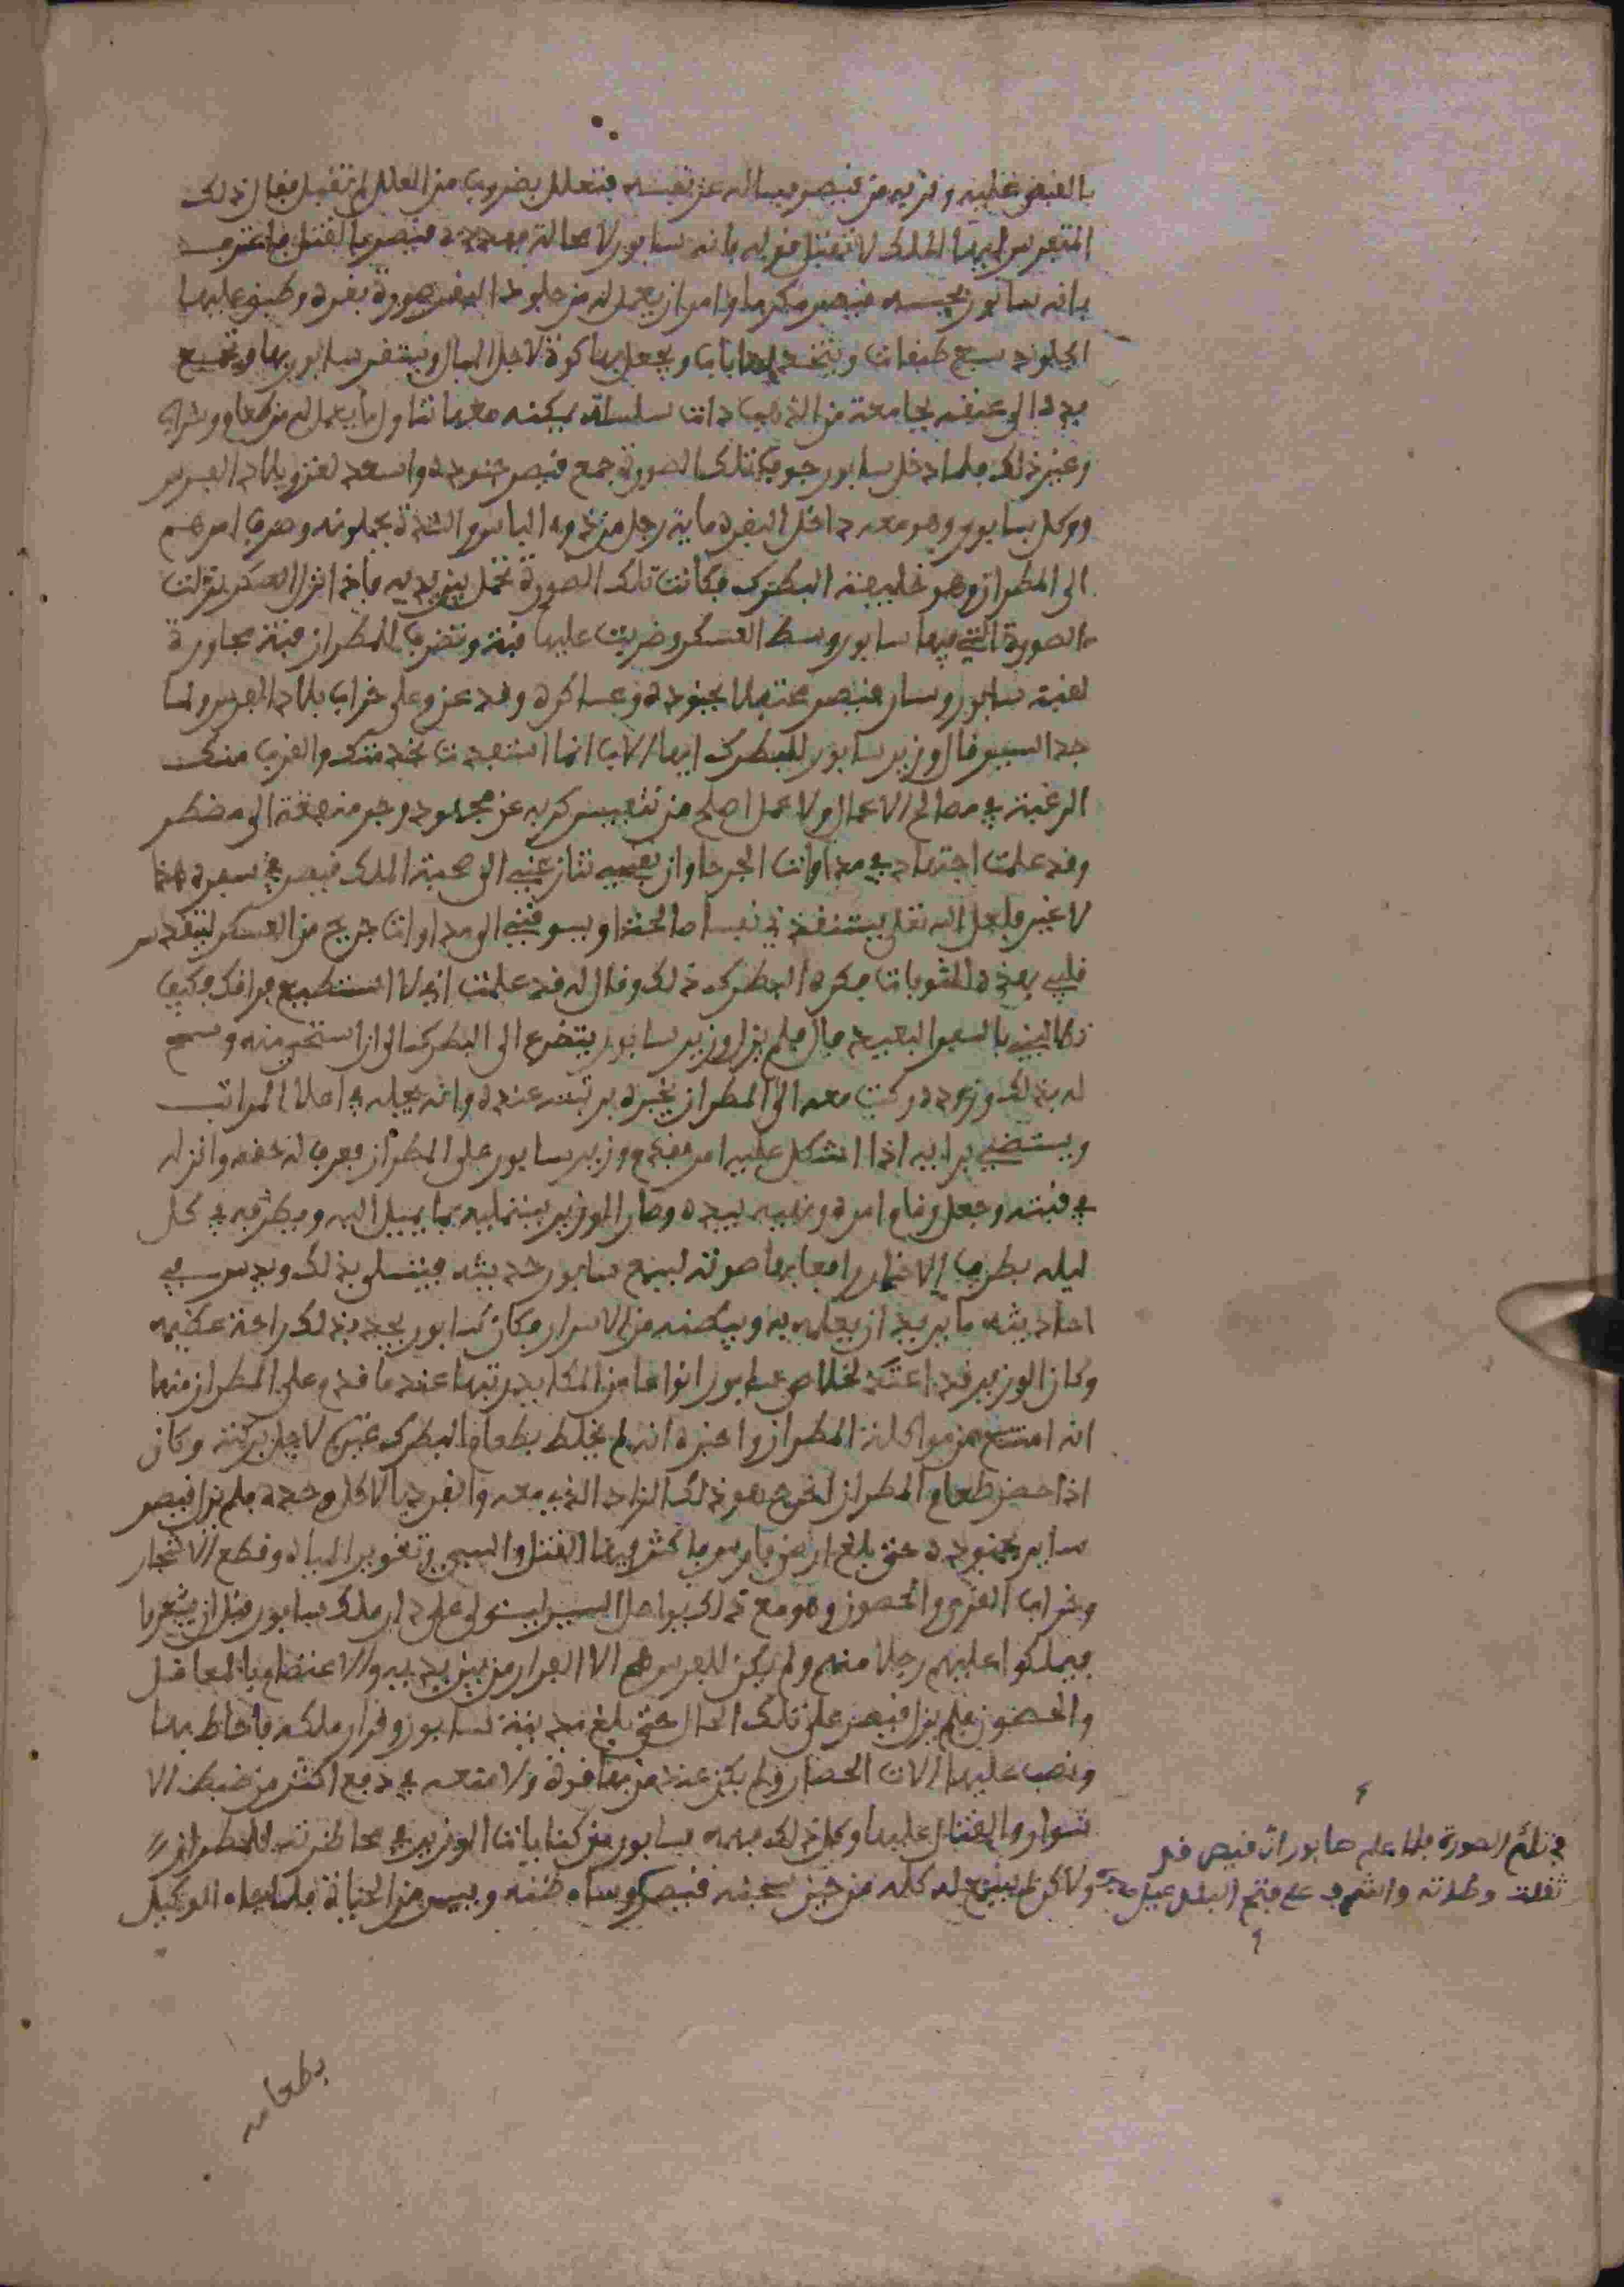 بالقبض عليه وقربه من قيصر فساله عن نفسه فتعلل بضروب من العلل لم تقبل فقال ذلك
المتفرس ايها الملك لا تقبل قوله فانه سابور لا محالة فهدده قيصر بالقتل فاعترف
بانه سابور فحبسه قيصر مكرما وامر ان يعمل له من جلود البقر صورة بقرة وطبق عليها
الجلود سبع طبقات ويتخذ لها بابا ويجعل بها كوة لاجل البال ويستقر سابور بها وتجمع
يده الى عنقه بجامعة من الذهب ذات سلسلة يمكنه معها تناول ما يعمل له من طعام وشراب
وغير ذلك فلما دخل سابور جوف تلك الصورة جمع قيصر جنوده واستعد لغزو بلاد الفرس
ووكل بسابور وهو معه داخل البقرة ماية رجل من ذوه الباس والشدة يحملونه وصرف امرهم
الى المطران وهو خليفة البطرك فكانت تلك الصورة تحمل بين يديه فاذا نزل العسكر نزلت
الصورة التي فيها سابور وسط العسكر وضربت عليها قبة وتضرب للمطران قبة مجاورة
لقبة سابور وسار قيصر محتفلا بجنوده وعساكره وقد عزم على خراب بلاد الفرس ولما
جد السير قال وزير سابور للبطرك ايها الاب انما استفدت بخدمتك والقرب منك
الرغبة في مصالح الاعمال ولا عمل اصلح من تنفيس كربه عن مجهود وجر منفعة الى مضطر
وقد علمت اجتهاده في مداوات الجرحا وان نفسي تنازعني الى صحبة الملك قيصر في سفره هذا
لا غير فلعل الله تعلى يستنقذ بي نفسا صالحة او يسوقني الى مداوات جريح من العسكر ليتقدس
قلبي بهذه المثوبات فكره البطرك ذلك وقال له قد علمت اني لا استطيع فراقك فكيف
تطالبني بالسفر البعيد قال فلم يزل وزير سابور يتضرع الى البطرك الى ان استحى منه وسمح
له بذلك وزوده وكتب معه الى المطران يخبره برتبته عنده وانه يحله في اعلا المراتب
ويستضي برايه اذا اشكل عليه امر فقدم وزير سابور على المطران فعرف له حقه وانزله
في قبته وجعل زمام امره ونهيه بيده وصار الوزير يستمليه بما يميل اليه ويطرفه في كل
ليله بطرف الاخبار رافعا بها صوته ليسمع سابور حديثه فيتسلى بذلك ويدس في
احاديثه ما يريد ان يعلمه به ويبطنه من الاسرار فكان سابور يجد بذلك راحة عظيمه
وكان الوزير قد اعتد لخلاص سابور انواعا من المكايد رتبها عند ما قدم على المطران منها
انه امتنع من مواكلة المطران واخبره انه لم يخلط بطعام البطرك غيره لاجل بركته وكان
اذا حضر طعام المطران اخرج هو ذلك الزاد الذي معه وانفرد بالاكل وحده فلم يزل قيصر
سايرا بجنوده حتى بلغ ارض فارس فاكثر فيها القتل والسبي وتغوير المياه وقطع الاشجار
وخراب القرى والحصون وهو مع ذلك يواصل السير ليستولى على دار ملك سابور قبل ان يشعروا
فيملكوا عليهم رجلا منهم ولم يكن للفرس هم الا الفرار من بين يديه والاعتصام بالمعاقل
والحصون فلم يزل قيصر على تلك الحال حتى بلغ مدينة سابور وقرار ملكه فاحاط بها
ونصب عليها الات الحصار ولم يكن عند من بها قوة ولا منعه في دفع اكثر من ضبط الا
سوار والقتال عليها وكل ذلك فهمه سابور من كنايات الوزير في محاظرته للمطران
ولاكن لم يسمع له كله من حين سجنه قيصر وساء ظنه وييس من الحياة فلما جاه الموكل
في تلك الصورة فلما علم سابور ان قيصر قد
ثقلت وطاته واشرف على فتح البلد عيل صبره
بطعامه